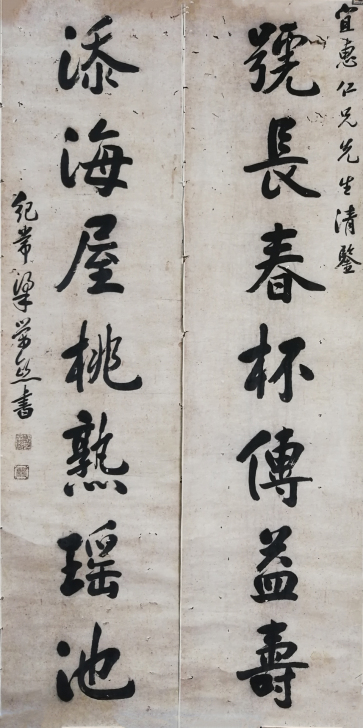 宜惠仁兄先生清鑒
號長春杯傳益壽
添海屋桃熟瑤池
紀常梁
書